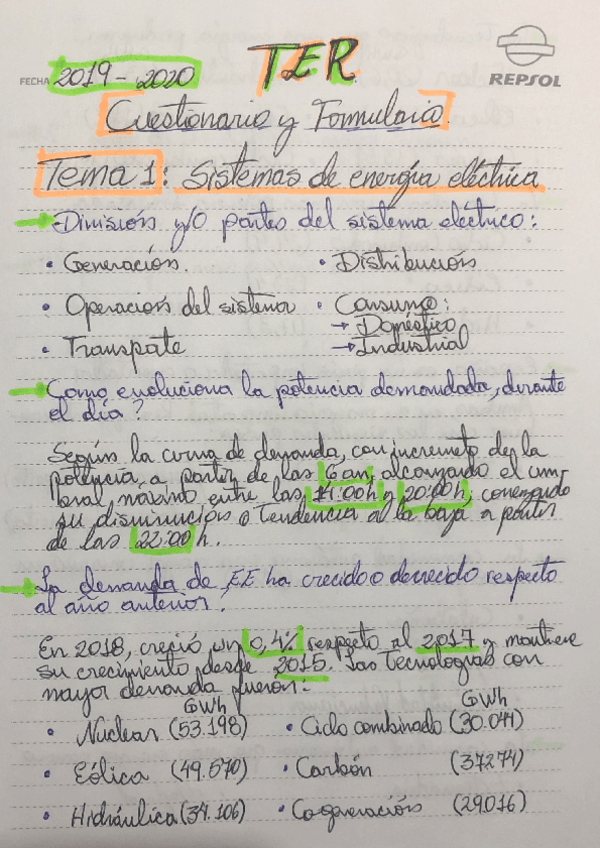 TER
REPSOL
FECHA 2019-2020
Cuestionario y Formulario
Tema 1: Sistemas de energía eléctrica
División y/o partes del sistema eléctrico:
• Generación.
• Distribución
• Operación del sistema
• Consumo:
→ Doméstico
• Transporte
→ Industrial
Como evoluciona la potencia demandada, durante
el día?
Según la curva de demanda, con incremeto de la
potencia a partir de las 6 am, alcanzando el um-
bral máximo entre las 11:00h y 20:00h, comenzando
su disminución o tendencia a la baja a partir
de las 22:00 h.
La demanda de EE ha crecido o decrecido respecto
al año anterior.
En 2018, creció un 0,4% respecto al 2017 y mantiene
su crecimiento desde 2015. Las tecnologías con
mayor demanda fueron:
GWh
GWh
• Nuclear (53.198)
• Ciclo combinado (30.044)
• Eólica (49.570)
• Carbón (37.274)
• Hidráulica (34.106)
• Cogeneración (29.016)